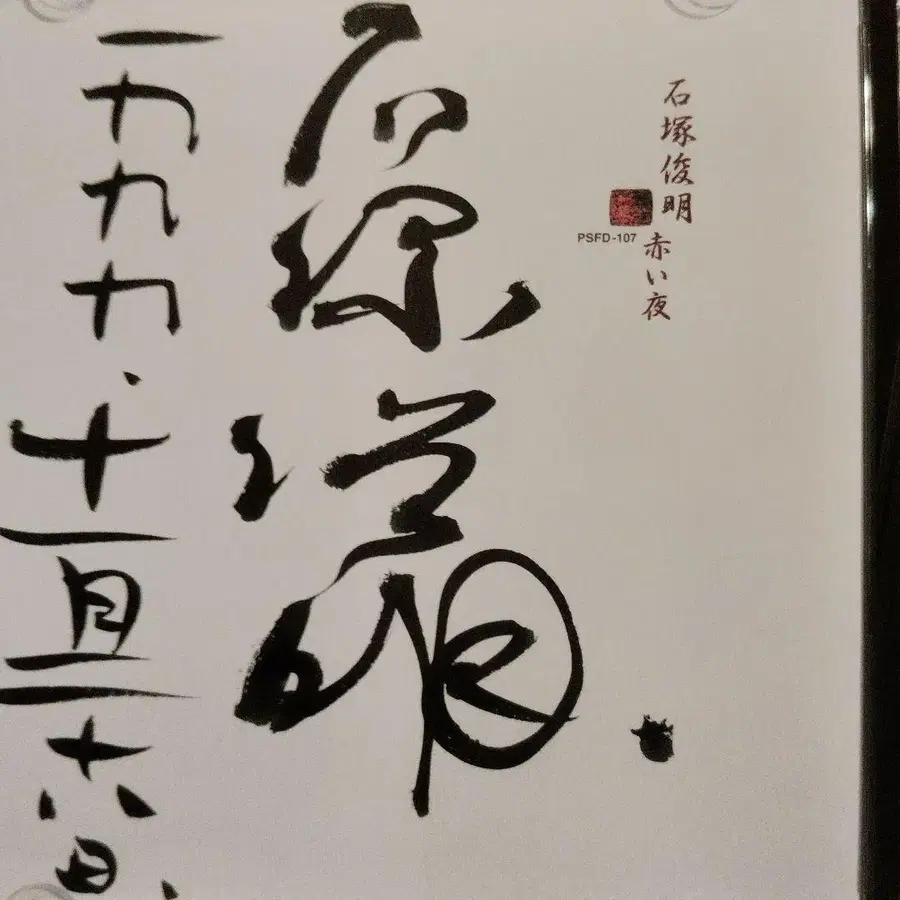 石塚俊明
赤い夜
PSFD-107
石塚俊明.
一九九九、十一月二六日、